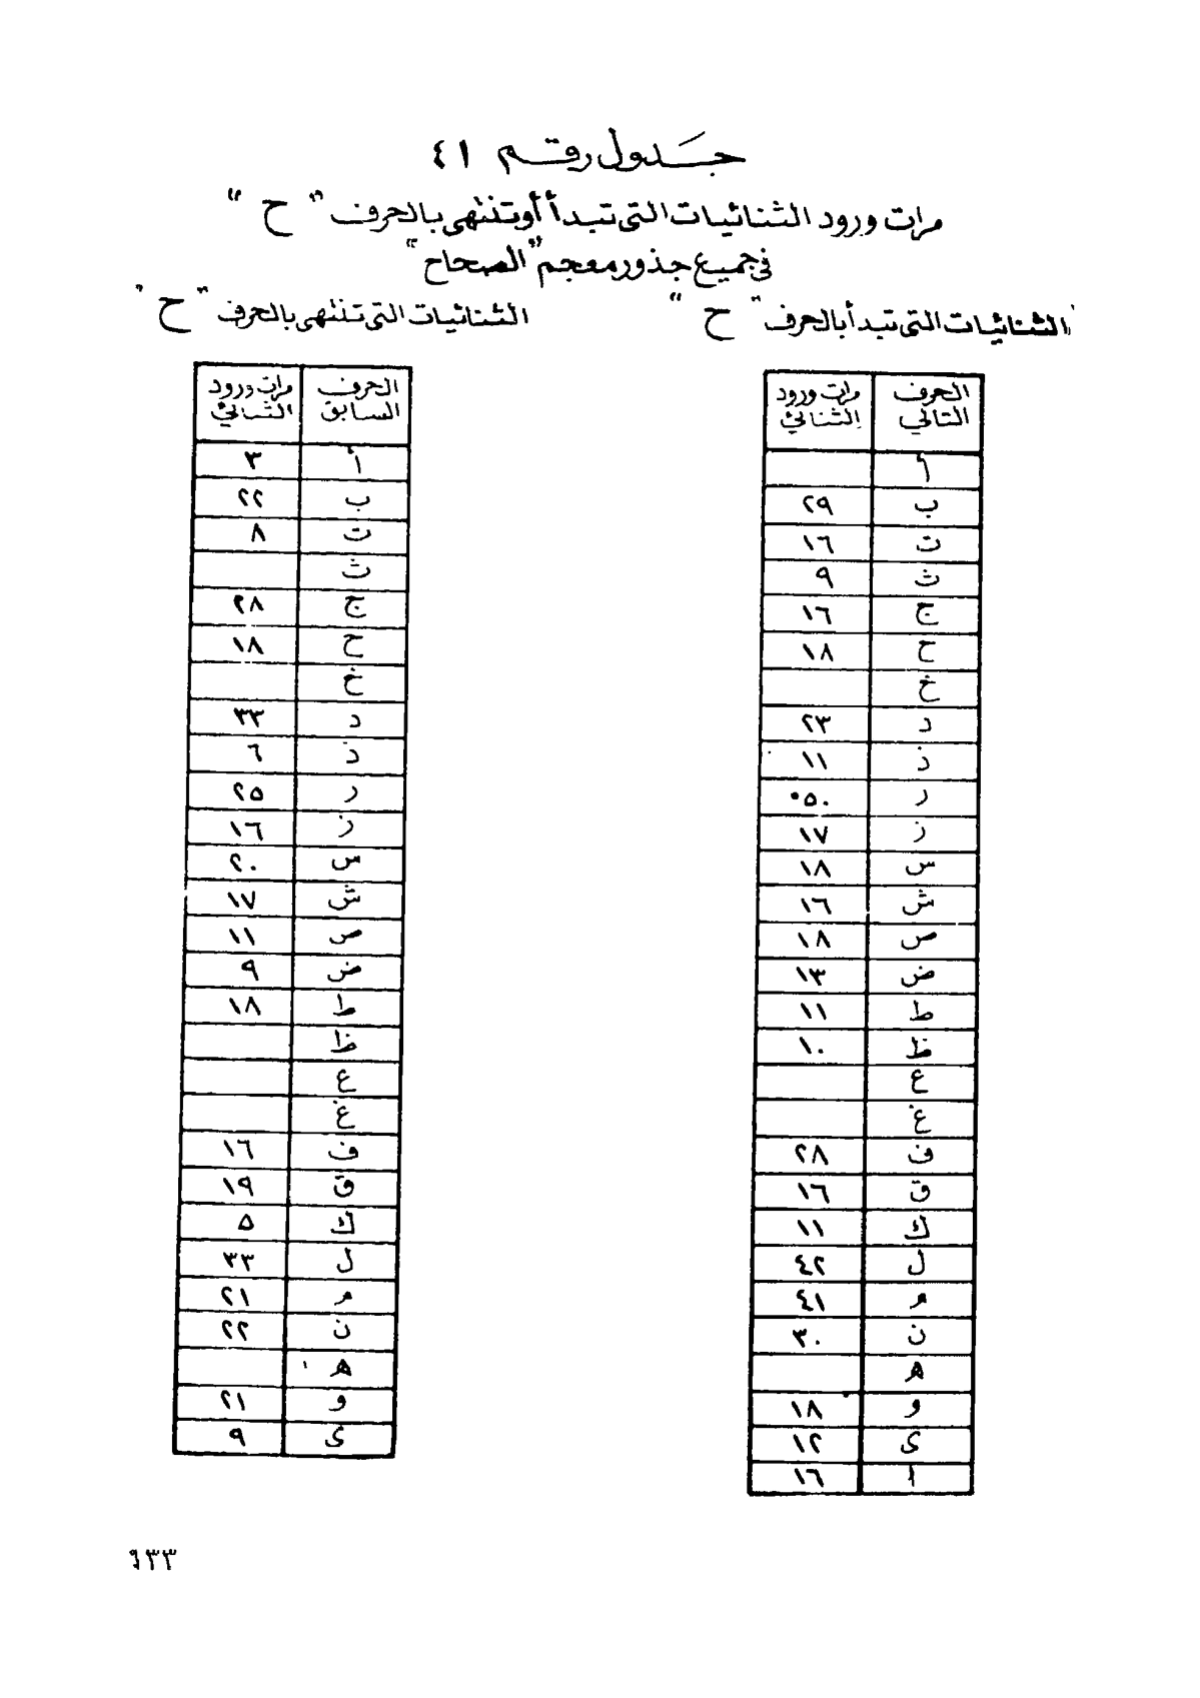 جدول رقم ٤١
مرات ورود الثنائيات التى تبدأ أو تنتهى بالحرف " ح "
فى جميع جذور معجم "الصحاح"
الثنائيات التى تبدأ بالحرف " ح "
الحرف التالي | مرات ورود الثنائي
أ |
ب | ٢٩
ت | ١٦
ث | ٩
ج | ١٦
ح | ١٨
خ |
د | ٢٣
ذ | ١١
ر | ٥٠
ز | ١٧
س | ١٨
ش | ١٦
ص | ١٨
ض | ١٣
ط | ١١
ظ | ١٠
ع |
غ |
ف | ٢٨
ق | ١٦
ك | ١١
ل | ٤٢
م | ٤١
ن | ٣٠
ه |
و | ١٨
ى | ١٢
ا | ١٦
الثنائيات التى تنتهى بالحرف " ح "
الحرف السابق | مرات ورود الثنائي
أ | ٣
ب | ٢٢
ت | ٨
ث |
ج | ٢٨
ح | ١٨
خ |
د | ٣٣
ذ | ٦
ر | ٢٥
ز | ١٦
س | ٢٠
ش | ١٧
ص | ١١
ض | ٩
ط | ١٨
ظ |
ع |
غ |
ف | ١٦
ق | ١٩
ك | ٥
ل | ٣٣
م | ٢١
ن | ٢٢
ه |
و | ٢١
ى | ٩